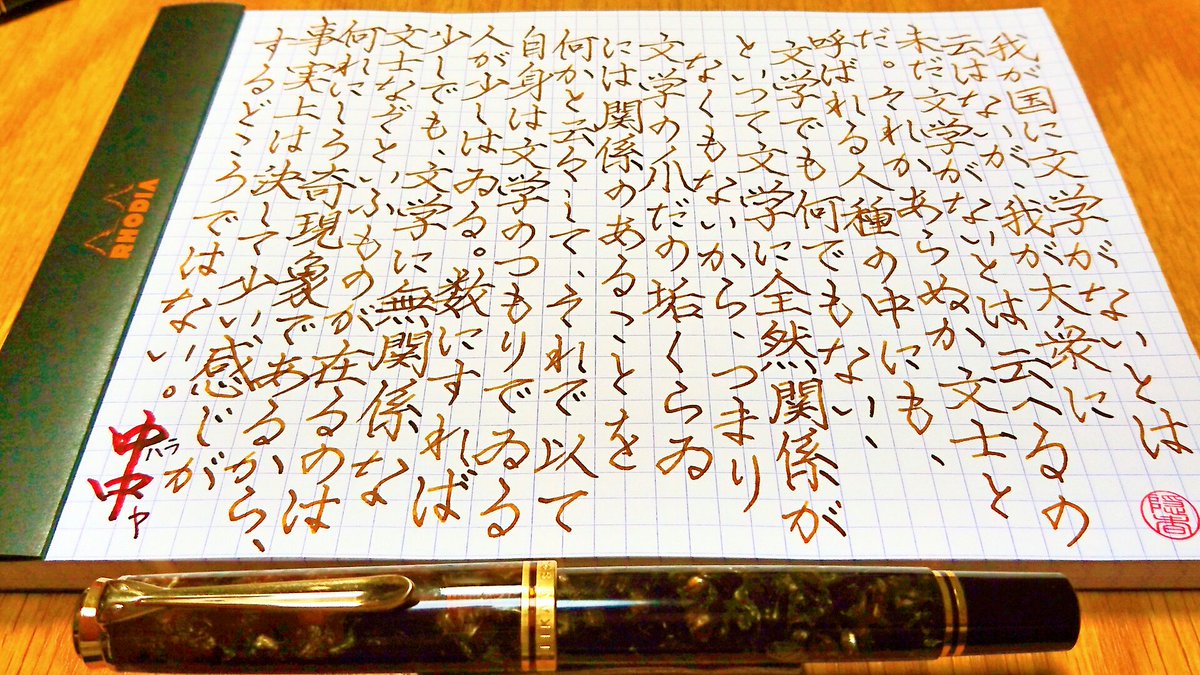 我が国に文学がないとは
云はないが、我が大衆に
未だ文学がないとは云へるの
だ。それかあらぬか、文士と
呼ばれる人種の中にも、
文学でも何でもない、
といつて文学に全然関係が
なくもないから、つまり
文学の爪だの垢くらゐ
には関係のあることを
何かと云々して、それで以て
自身は文学のつもりでゐる
人が少しはゐる。数にすれば
少しでも、文学に無関係な
文士なぞといふものが在るのは
何れにしろ奇現象であるから、
事実上は決して少い感じが
するどころではない。
中ハラ中ヤ
RHODIA